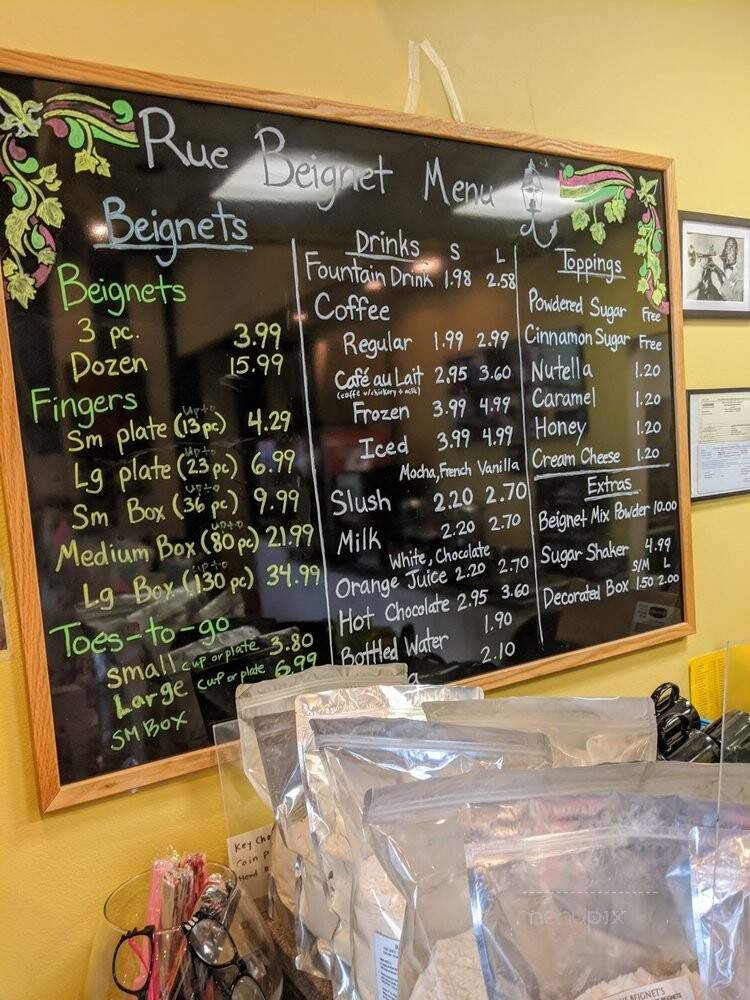 Rue Beignet Menu
Beignets
Beignets
3 pc. 3.99
Dozen 15.99
Fingers
Sm plate (up to 13pc) 4.29
Lg plate (up to 23 pc) 6.99
Sm Box (up to 36 pc) 9.99
Medium Box (up to 80 pc) 21.99
Lg Box (up to 130 pc) 34.99
Toes-to-go
small cup or plate 3.80
Large cup or plate 6.99
SM BOX
Drinks S L
Fountain Drink 1.98 2.58
Coffee
Regular 1.99 2.99
Café au Lait 2.95 3.60
(coffe w/chickory + milk)
Frozen 3.99 4.99
Iced 3.99 4.99
Mocha, French Vanilla
Slush 2.20 2.70
Milk 2.20 2.70
White, Chocolate
Orange Juice 2.20 2.70
Hot Chocolate 2.95 3.60
Bottled Water 1.90
2.10
Toppings
Powdered Sugar Free
Cinnamon Sugar Free
Nutella 1.20
Caramel 1.20
Honey 1.20
Cream Cheese 1.20
Extras
Beignet Mix Powder 10.00
Sugar Shaker 4.99
S/M L
Decorated Box 1.50 2.00
Key Cha
Coin P
Head B
menupix
BEIGNET'S